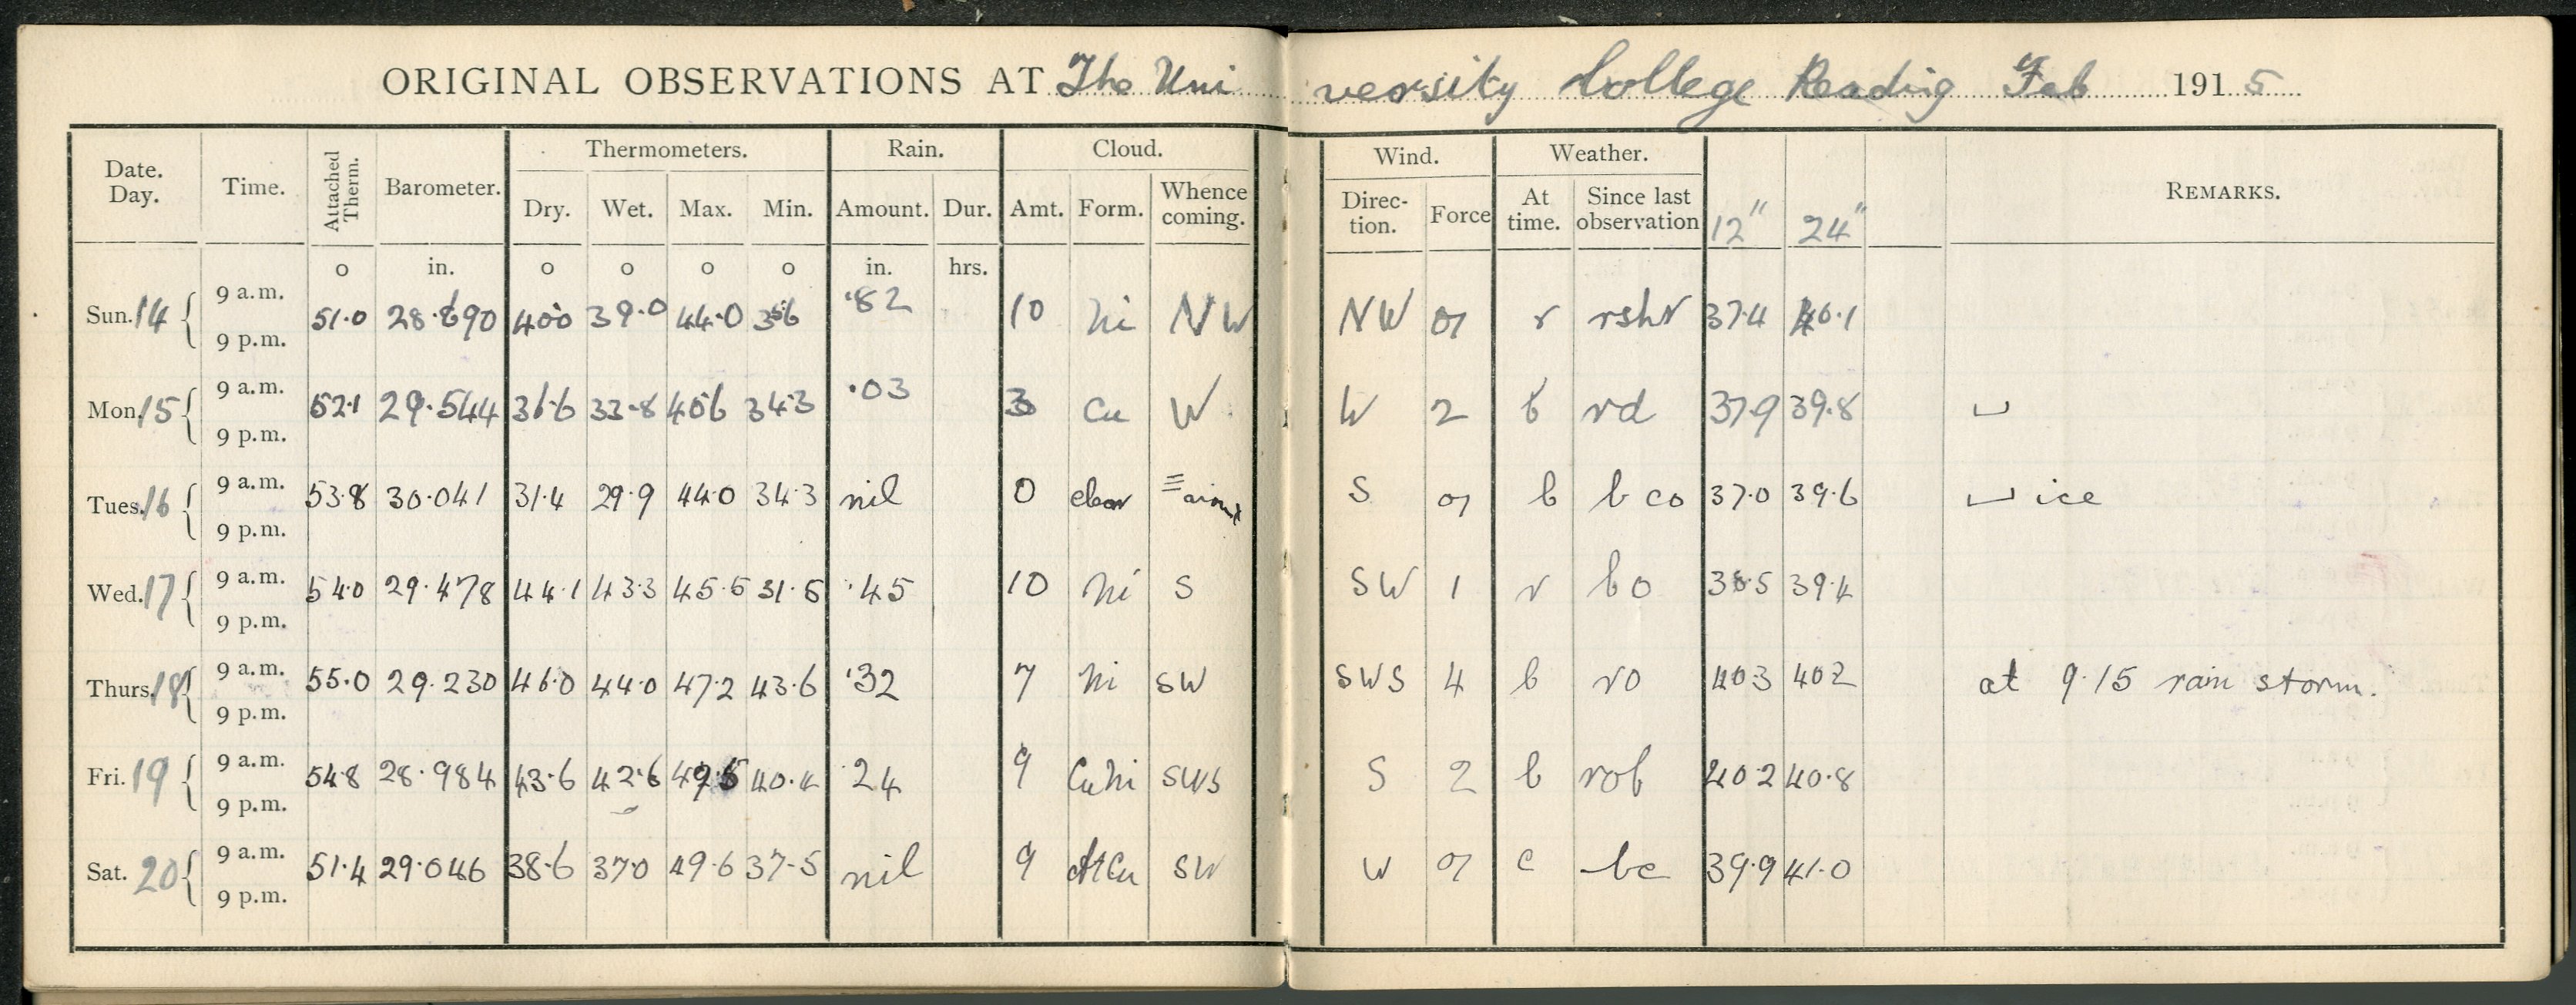 ORIGINAL OBSERVATIONS AT The University College Reading Feb 1915
Date. Day. Time. Attached Therm. Barometer. Thermometers. Rain. Cloud. Wind. Weather. 12" 24" REMARKS.
Dry. Wet. Max. Min. Amount. Dur. Amt. Form. Whence coming. Direc-tion. Force At time. Since last observation
o in. o o o o in. hrs.
Sun. 14 9 a.m. 51.0 28.690 40.0 39.0 44.0 .82 10 Ni NW NW r rshr 37.4 40.1
9 p.m.
Mon. 15 9 a.m. 52.1 29.544 36.6 33.8 40.6 34.3 .03 3 Cu W W 2 b rd 37.9 39.8 ⌴
9 p.m.
Tues. 16 9 a.m. 53.8 30.041 31.4 29.9 44.0 34.3 nil 0 clear ≡ S b b co 37.0 39.6 ⌴ ice
9 p.m.
Wed. 17 9 a.m. 54.0 29.478 44.1 43.3 45.5 31.5 .45 10 Ni S SW 1 r bo 38.5 39.4
9 p.m.
Thurs. 18 9 a.m. 55.0 29.230 46.0 44.0 47.2 43.6 .32 7 Ni SW SWS 4 b ro 40.3 40.2 at 9.15 rain storm.
9 p.m.
Fri. 19 9 a.m. 54.8 28.984 43.6 42.6 49.5 40.4 .24 9 CuNi SWS S 2 b rob 40.2 40.8
9 p.m.
Sat. 20 9 a.m. 51.4 29.046 38.6 37.0 49.6 37.5 nil 9 AtCu SW W c bc 39.9 41.0
9 p.m.